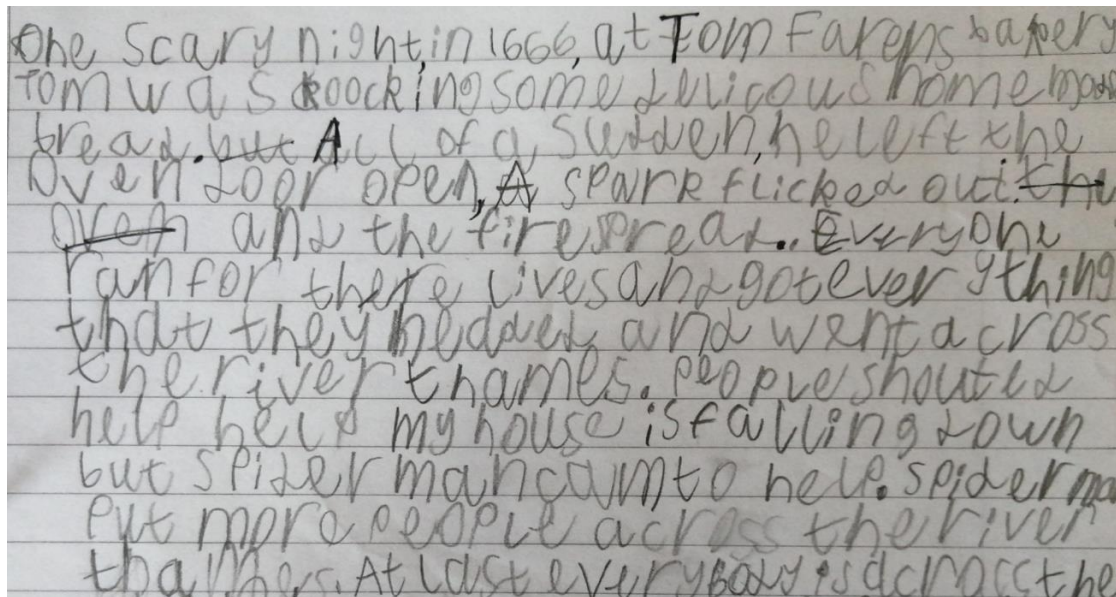 One Scary night, in 1666, at Tom Farens bakery
Tom was coocking some delicous home made
bread. but All of a sudden, he left the
Oven door open, A spark flicked out. the
oven and the fire spread... Everyone
ran for there lives and got every thing
that they nedded and went across
the river thames. People shouted
help help my house is falling down
but spider man cam to help. spider ma
Put more people across the river
thames. At last everybody is across the